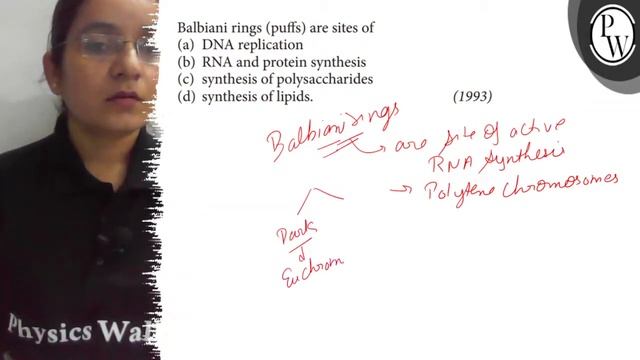 Balbiani rings (puffs) are sites of
(a) DNA replication
(b) RNA and protein synthesis
(c) synthesis of polysaccharides
(d) synthesis of lipids. (1993)
Balbiani rings
are site of active
RNA synthesis
Polytene chromosomes
Dark
Euchrom
PW
Physics Wal